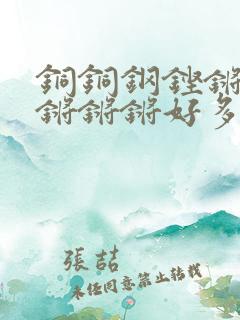 銅銅鋼鏗鏘
鏘鏘鏘好多
張喆
未經同意禁止轉載